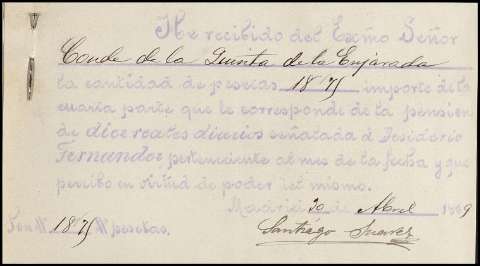 He recibido del Exmo Señor
Conde de la Quinta de la Enjarada
la cantidad de pesetas 18"75 importe de la
cuarta parte que le corresponde de la pension
de dice reales diarios señalada á Desiderio
Fernandez perteneciente al mes de la fecha y que
percibo en virtud de poder del mismo.
Madrid 30 de Abril 1889
Son # 18"75 # pesetas.
Santiago Suarez